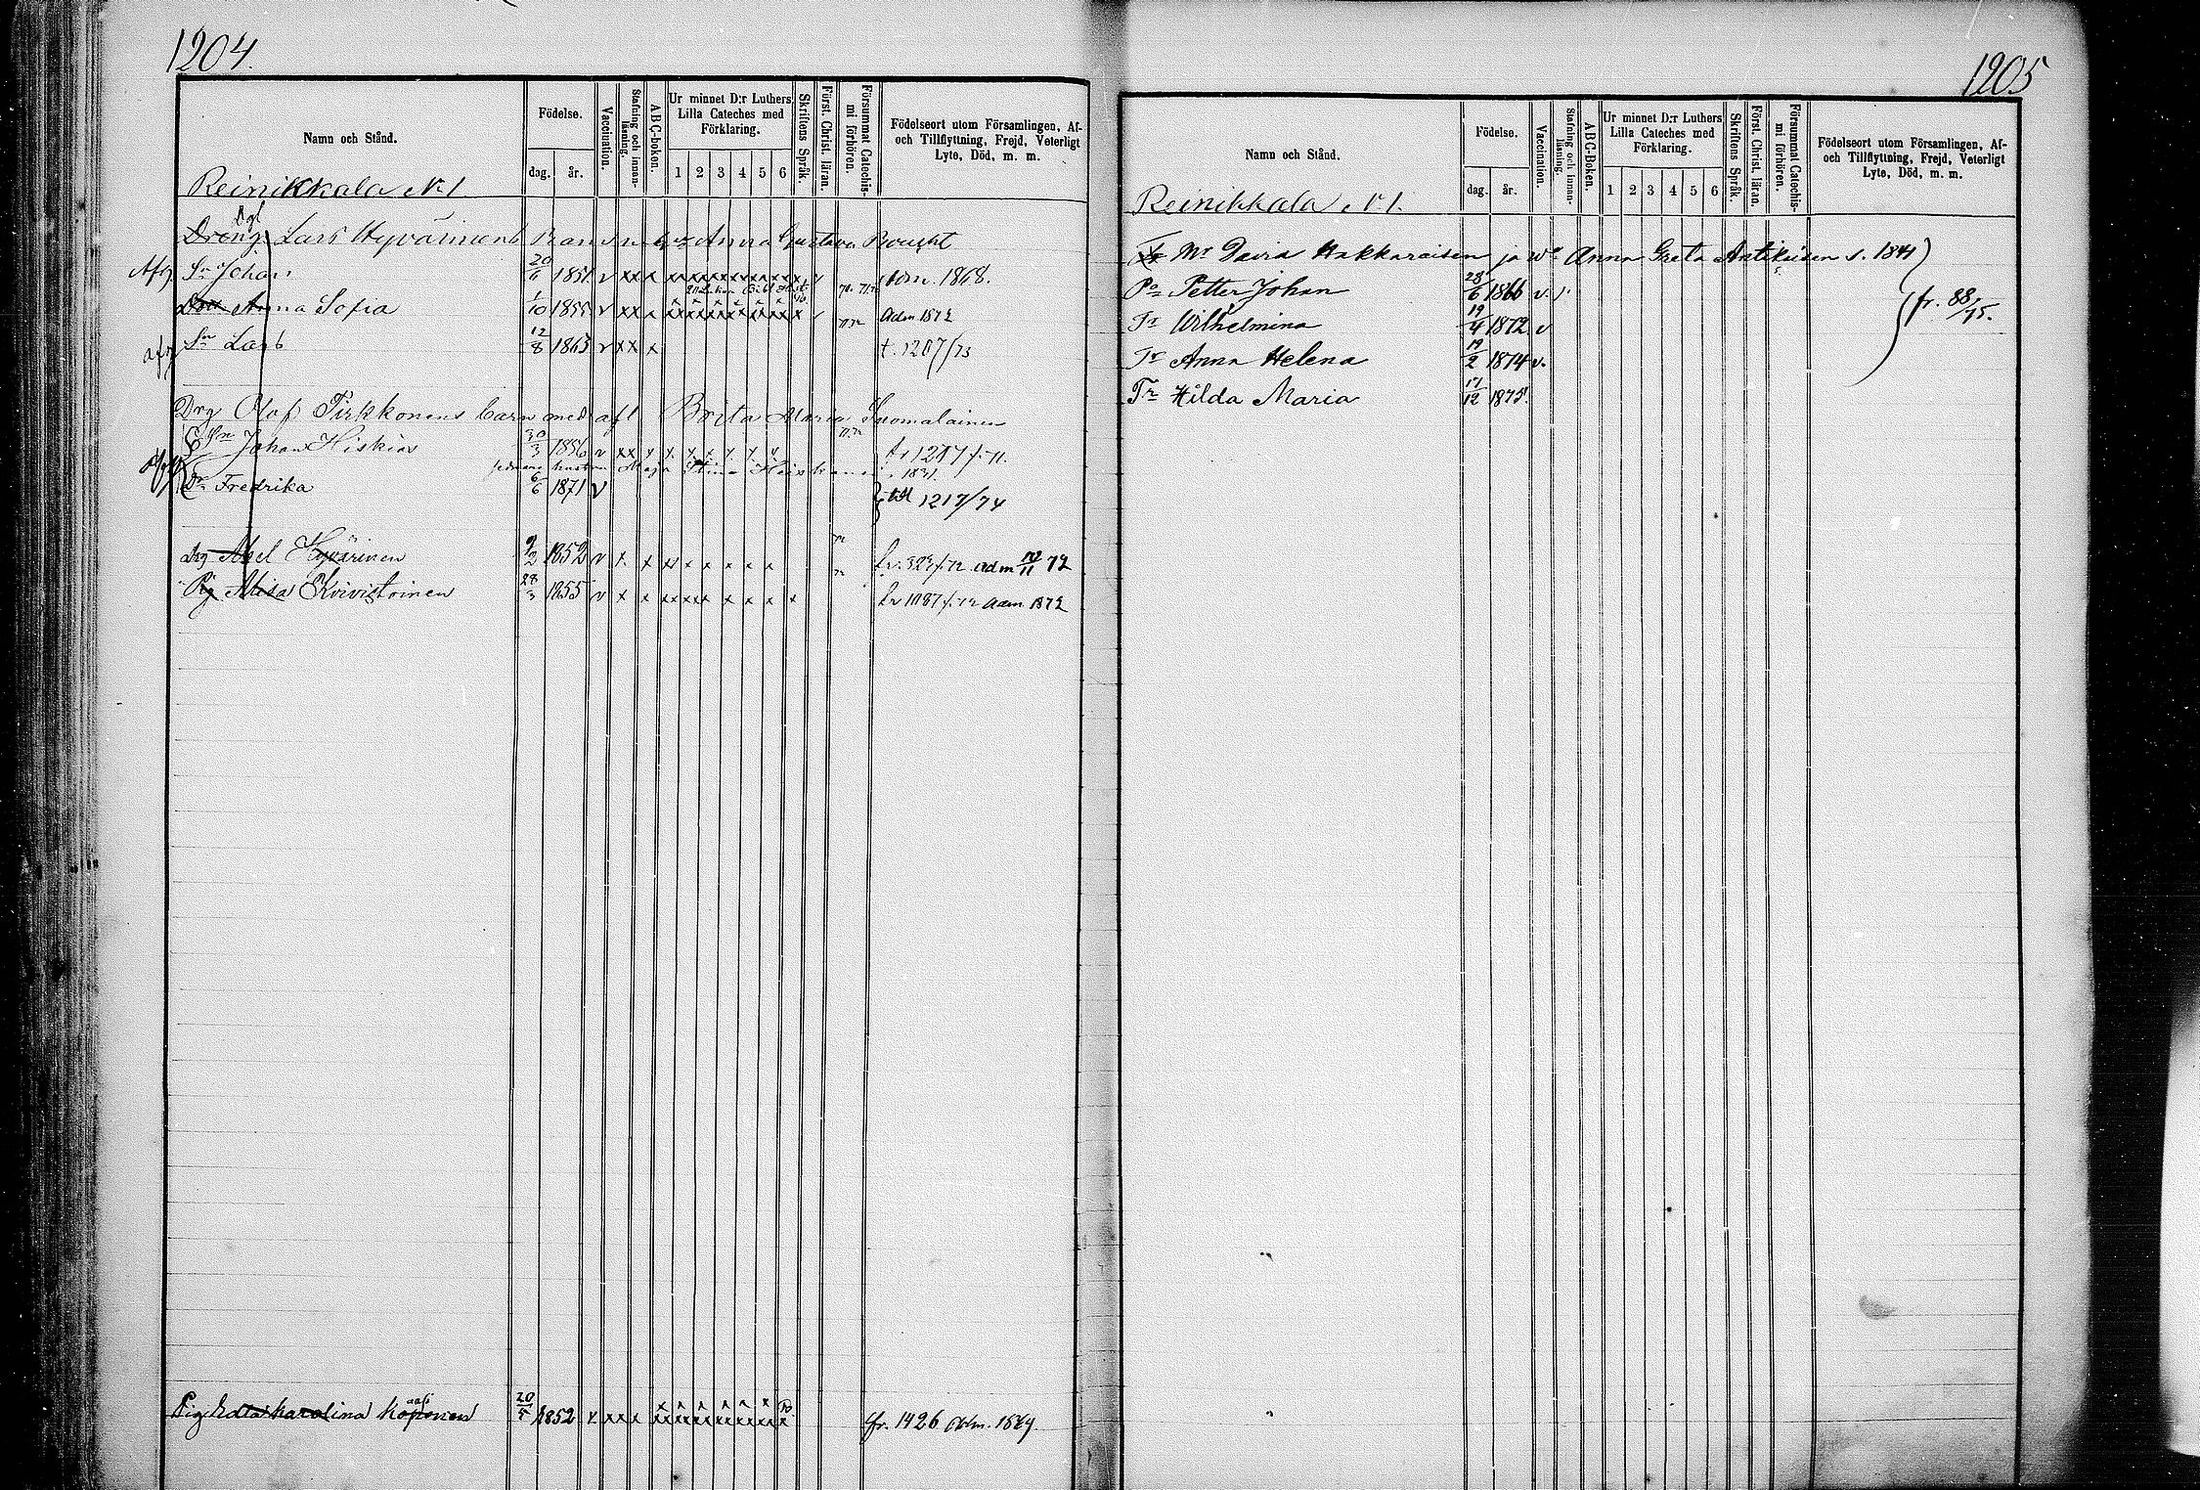 1204.
Namn och Stånd.
Födelse.
dag. år.
Vaccination.
Stafning och innanläsning.
A B C-boken.
Ur minnet D:r Luthers Lilla Cateches med Förklaring.
1 2 3 4 5 6
Skriftens Språk.
Först. Christ. läran.
Försummat Catechismi förhören.
Födelseort utom Församlingen, Af- och Tillflyttning, Frejd, Veterligt Lyte, Död, m. m.
Reinikkala N:1.
Dreng Lars Hyvärinens Barn Anna Gustava
Afg. Sn Johan 20/11 1851 v xx x adm. 1868.
Anna Sofia 1/10 1855 v xx x adm 1872
afg Sn Lars 12/8 1863 v xx x t. 1207/73
Drg Olof Pirkkonens barn med afl Brita Maria Suomalainen
Sn Johan Hiskias 30/3 1856 v xx
hustrun Maja Stina 1831.
Dr Fredrika 6/6 1871 v till 1217/74
Drg Abel Hyvärinen 9/2 1852 v x x adm 72
Pig Kivistoinen 28/3 1855 v x x fr 1087 adm 1872
Pig Karolina Koponen 20/5 1852 fr. 1426 adm. 1869.
1205
Namn och Stånd.
Födelse.
dag. år.
Vaccination.
Stafning och innanläsning.
A B C-Boken.
Ur minnet D:r Luthers Lilla Cateches med Förklaring.
1 2 3 4 5 6
Skriftens Språk.
Först. Christ. läran.
Försummat Catechismi förhören.
Födelseort utom Församlingen, Af- och Tillflyttning, Frejd, Veterligt Lyte, Död, m. m.
Reinikkala N:1.
Mr David Hakkaraisen ja Wo Anna Greta Antikaisen s. 1841
Po Petter Johan 28/6 1866 v.
Tr Wilhelmina 19/4 1872 v fr. 88/75.
Tr Anna Helena 19/2 1874 v.
Tr Hilda Maria 17/12 1875.